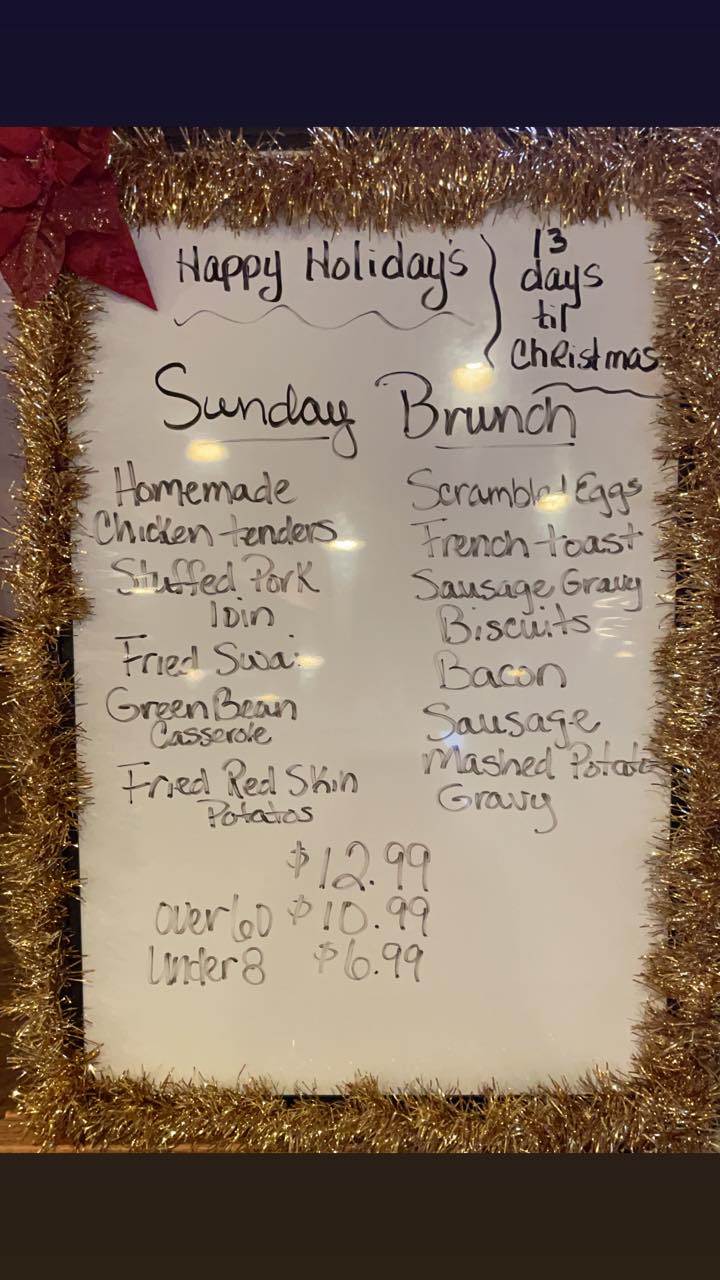 Happy Holiday's
13
days
til
Christmas
Sunday Brunch
Homemade
Chicken tenders
Stuffed Pork
loin
Fried Swai
Green Bean
Casserole
Fried Red Skin
Potatos
Scrambled Eggs
French toast
Sausage Gravy
Biscuits
Bacon
Sausage
Mashed Potatos
Gravy
$12.99
over 60 $10.99
Under 8 $6.99